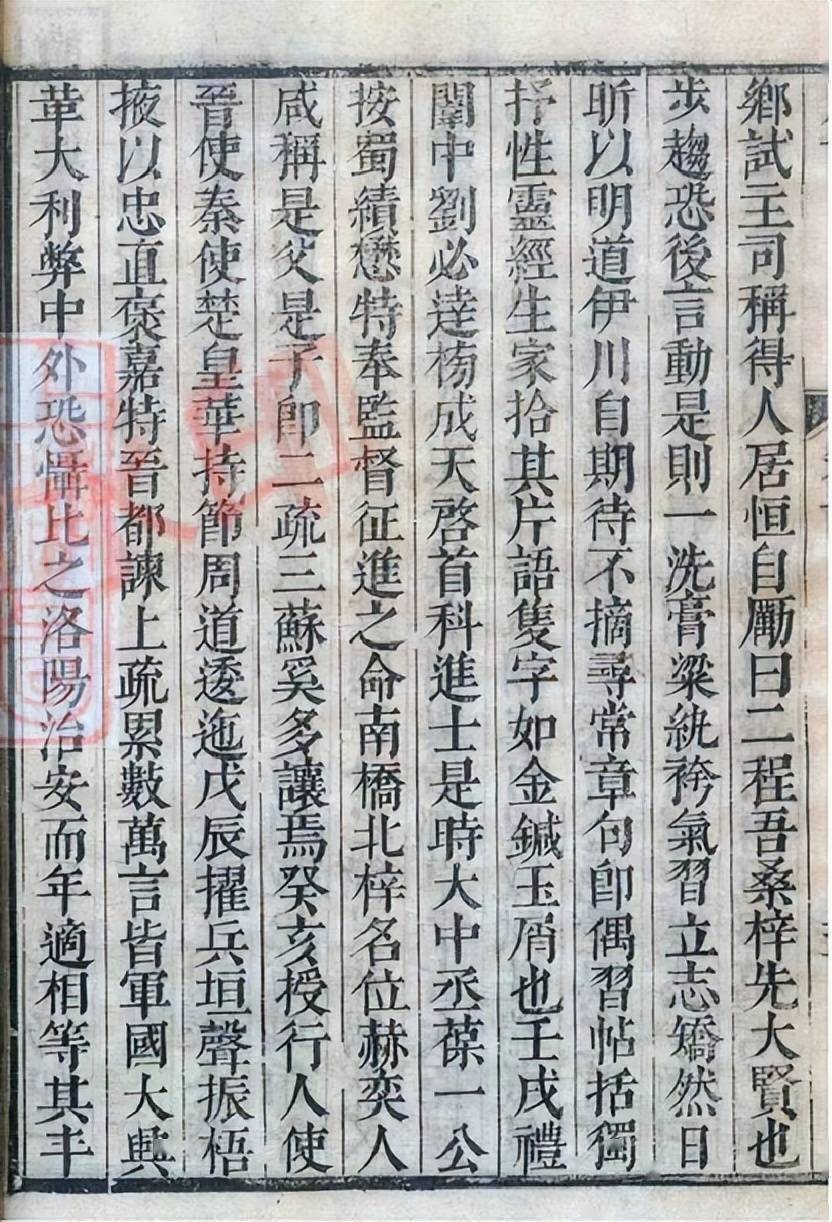 鄉試主司稱得人居恒自勵曰二程吾桑梓先大賢也
步趨恐後言動是則一洗膏粱紈袴氣習立志矯然日
昕以明道伊川自期待不摘尋常章句即偶習帖括獨
抒性靈經生家拾其片語隻字如金鍼玉屑也壬戌禮
闈中劉必達榜成天啓首科進士是時大中丞葆一公
按蜀績懋特奉監督征進之命南橋北梓名位赫奕人
咸稱是父是子即二疏三蘇奚多讓焉癸亥授行人使
晉使秦使楚皇華持節周道逶迤戊辰擢兵垣聲振梧
掖以忠直褒嘉特晉都諫上疏累數萬言皆軍國大典
革大利弊中外恐懾比之洛陽治安而年適相等其丰